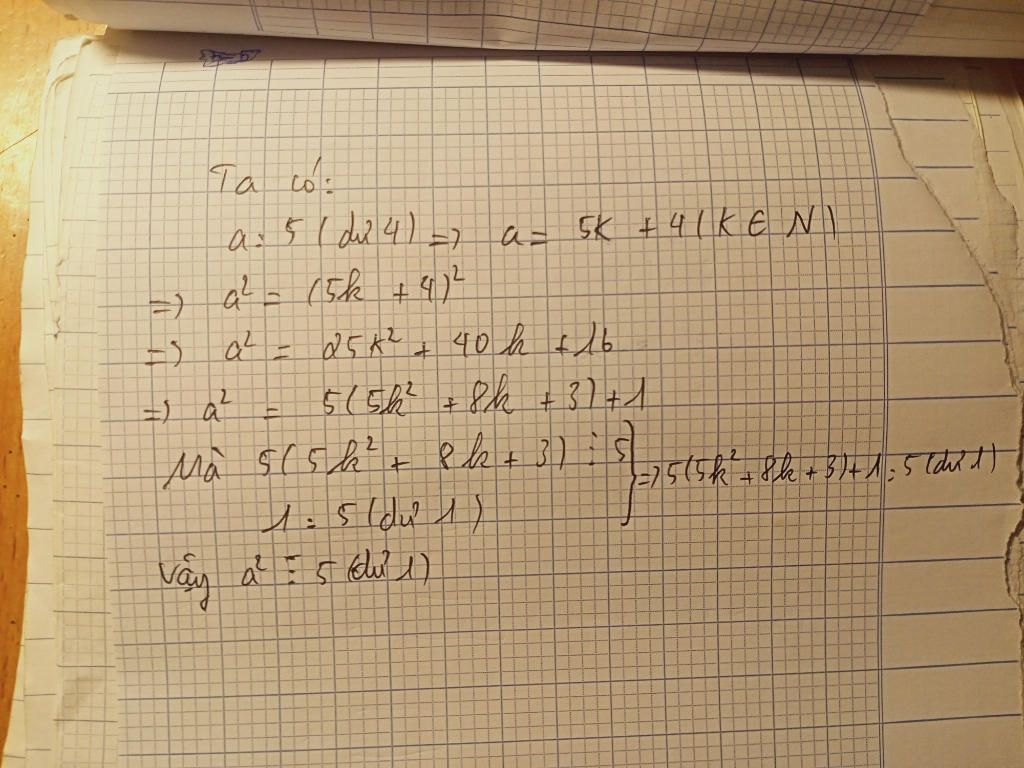 Ta có:
a : 5 (dư 4) => a = 5k + 4 (k ∈ N)
=> a² = (5k + 4)²
=> a² = 25k² + 40k + 16
=> a² = 5(5k² + 8k + 3) + 1
Mà 5(5k² + 8k + 3) ⋮ 5
1 : 5 (dư 1) } => 5(5k² + 8k + 3) + 1 : 5 (dư 1)
Vậy a² : 5 (dư 1)